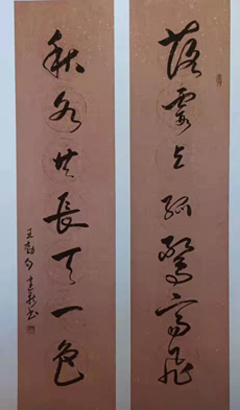 落霞与孤鹜齊飛
秋水共長天一色
王勃句